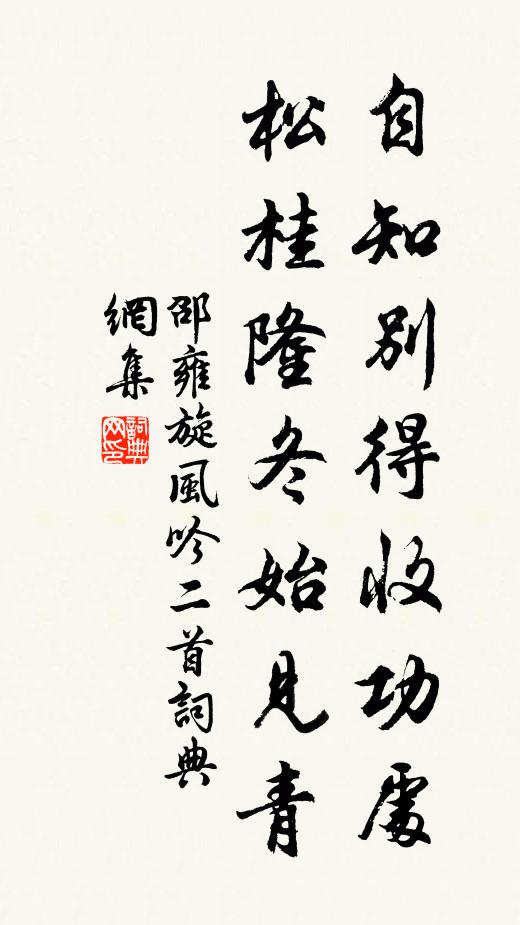 自知別得收功處
松桂隆冬始見青
邵雍旋風吟二首詞典
網集
詞典
网印